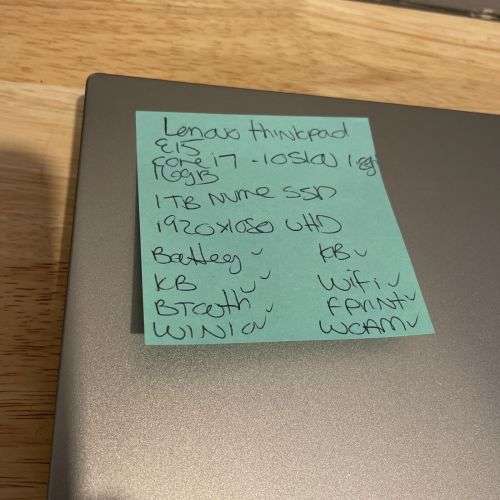 Lenovo thinkpad
E15
core i7 - 10510U 1.8g
16gB
1TB NVme SSD
1920x1080 UHD
Battery ✓ KB ✓
KB ✓✓ Wifi ✓
BTooth ✓ FPRINT ✓
WIN10 ✓ WCAM ✓